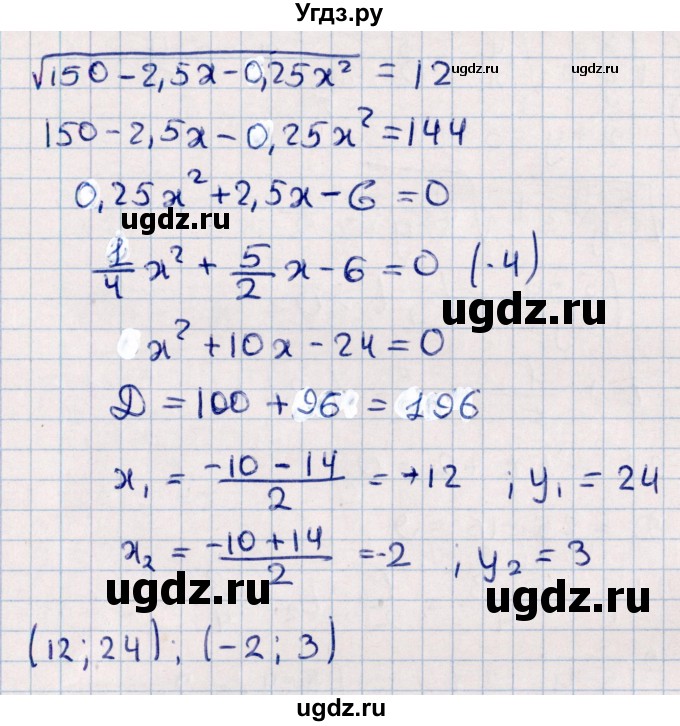 Угдз.ру
√150 - 2,5x - 0,25x² = 12
ugdz.ru ugdz.ru
150 - 2,5x - 0,25x² = 144
0,25x² + 2,5x - 6 = 0
ugdz.ru
1/4 x² + 5/2 x - 6 = 0 (·4)
ugdz.ru
x² + 10x - 24 = 0
D = 100 + 96 = 196
x₁ = (-10 - 14)/2 = +12 ; y₁ = 24
x₂ = (-10 + 14)/2 = -2 ; y₂ = 3
ugdz.ru ugdz.ru
(12; 24); (-2; 3)
ugdz.ru